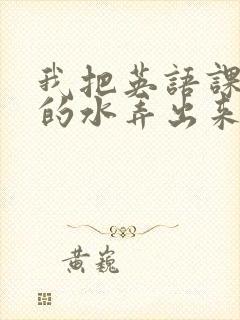 我把英語課
的水弄出来
黃巍